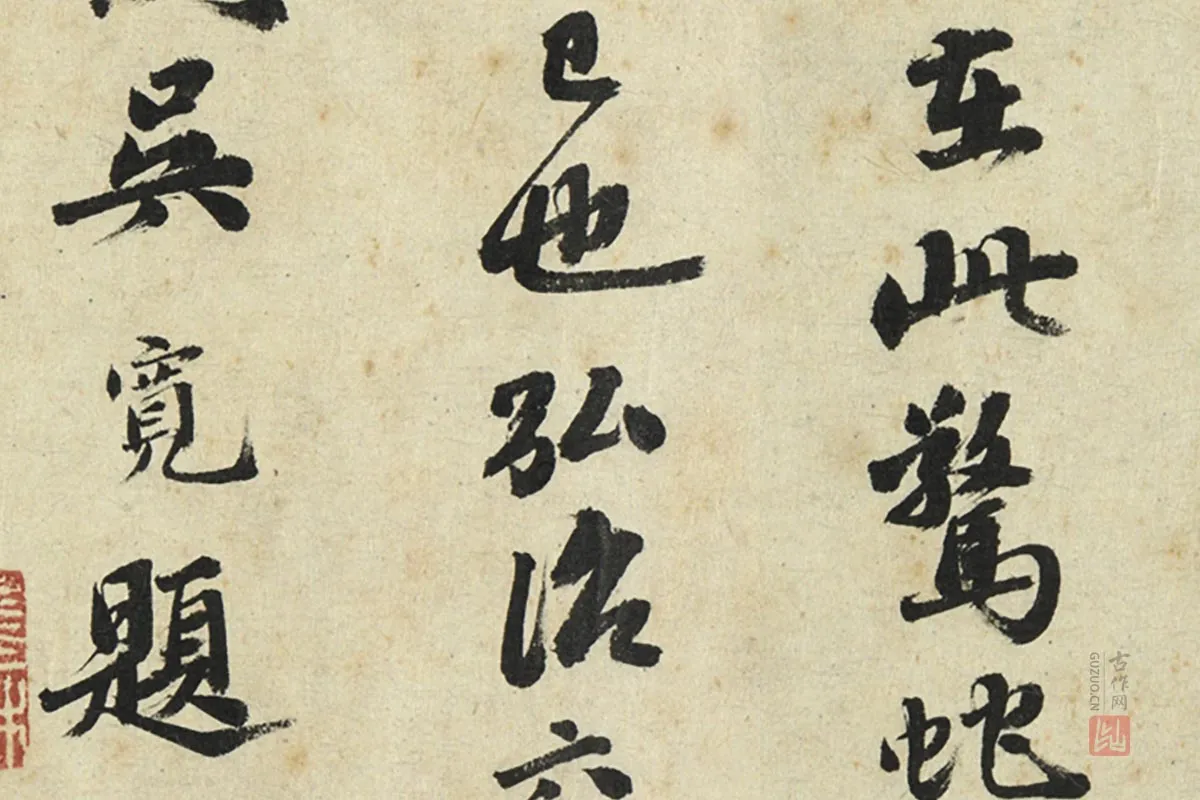 在此驚蛇
已也弘治六
吳寬題
古作网
GUZUO.CN